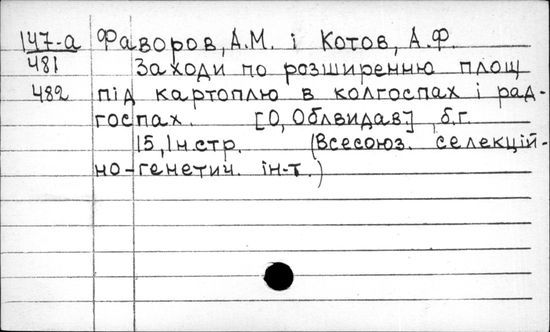 147-а Фаворов, А.М. і Котов, А.Ф.
481 Заходи по розширенню площ
482 під картоплю в колгоспах і рад-
госпах. [О, Облвидав.], б.г.
15, Ін.стр. (Всесоюз. селекцій-
но-генетич. ін-т.)